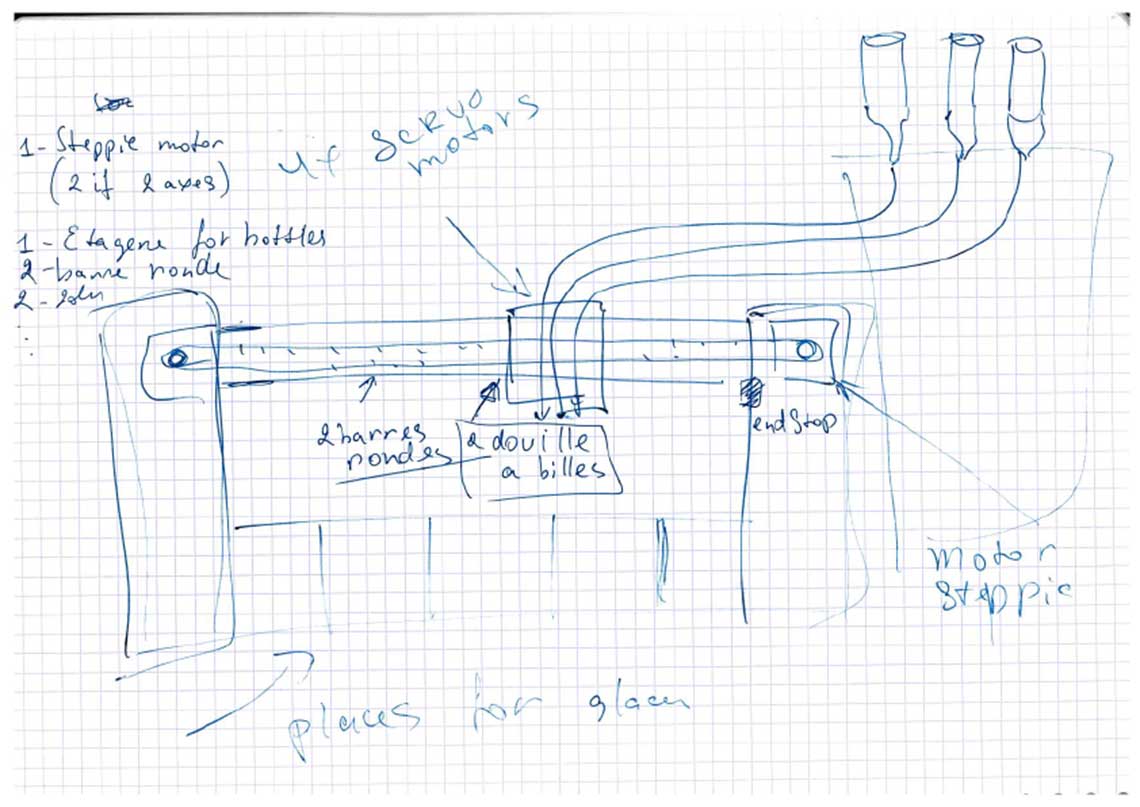 1- Steppie motor
(2 if 2 axes)
1- Etagene for bottles
2- barre ronde
2-
servo
motors
2 barres
rondes
2 douille
a billes
endstop
Motor
Steppie
places for